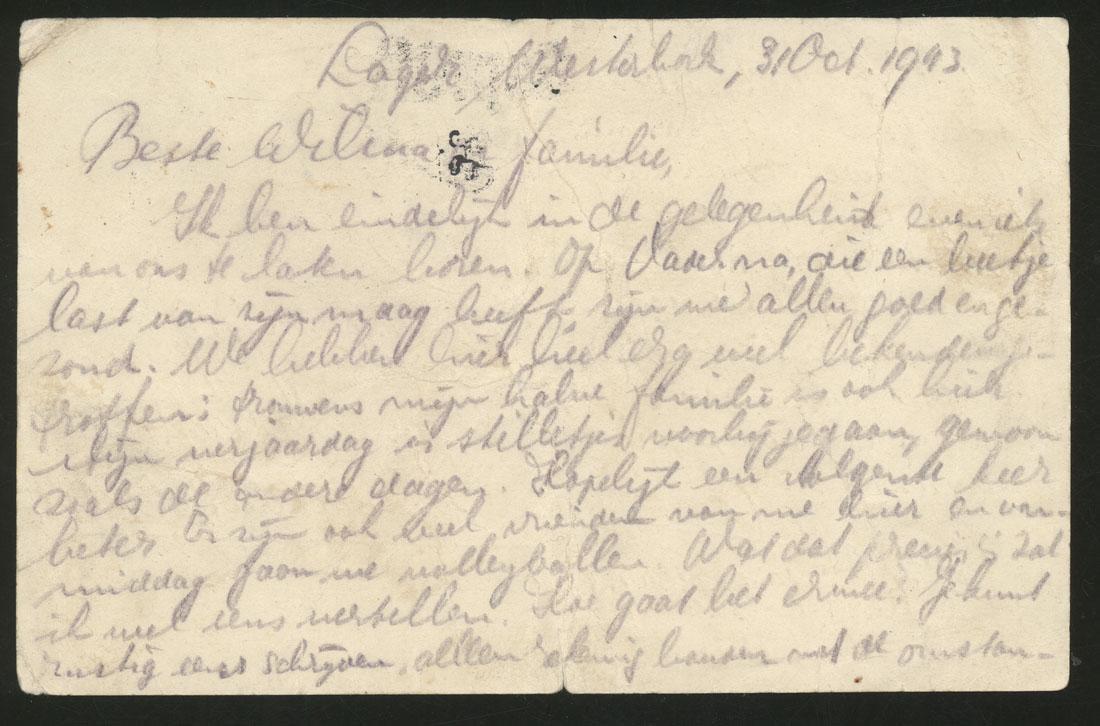 Lager Westerbork, 31 Oct. 1943
Beste Wilma familie,
Ik ben eindelijk in de gelegenheid even iets
van ons te laten horen. Op Vader na, die een beetje
last van zijn maag heeft, zijn we allen goed en ge-
zond. We hebben hier heel erg veel bekenden ge-
troffen; trouwens mijn halve familie is ook hier
Mijn verjaardag is stilletjes voorbijgegaan, gewoon
zoals de andere dagen. Hopelijk een volgende keer
beter Er zijn ook wel vrienden van me hier en van-
middag gaan we volleyballen. Wat dat precies is zal
ik wel eens vertellen. Hoe gaat het ermee? Je kunt
rustig eens schrijven, alleen rekening houden met de omstan-